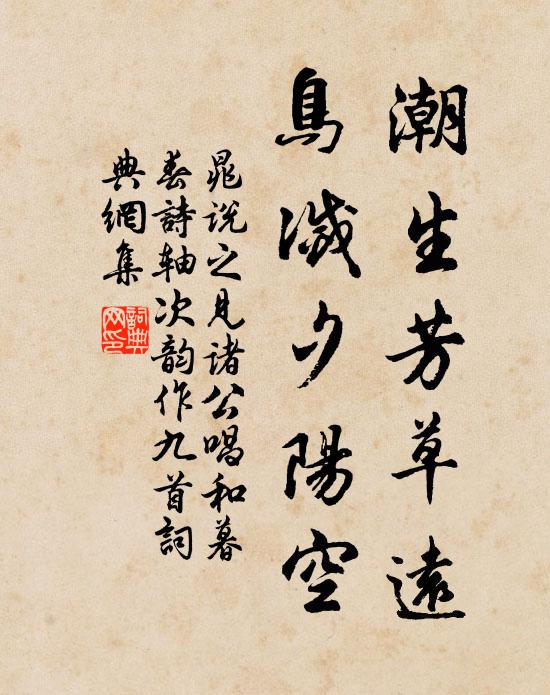 潮生芳草遠
鳥滅夕陽空
晁説之見諸公唱和暮
春詩軸次韵作九首詞
典網集
詞典
网印